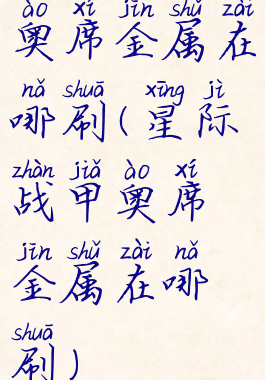 ào xí jīn shǔ zài
奥席金属在
nǎ shuā xīng jì
哪刷(星际
zhàn jiǎ ào xí
战甲奥席
jīn shǔ zài nǎ
金属在哪
shuā
刷)